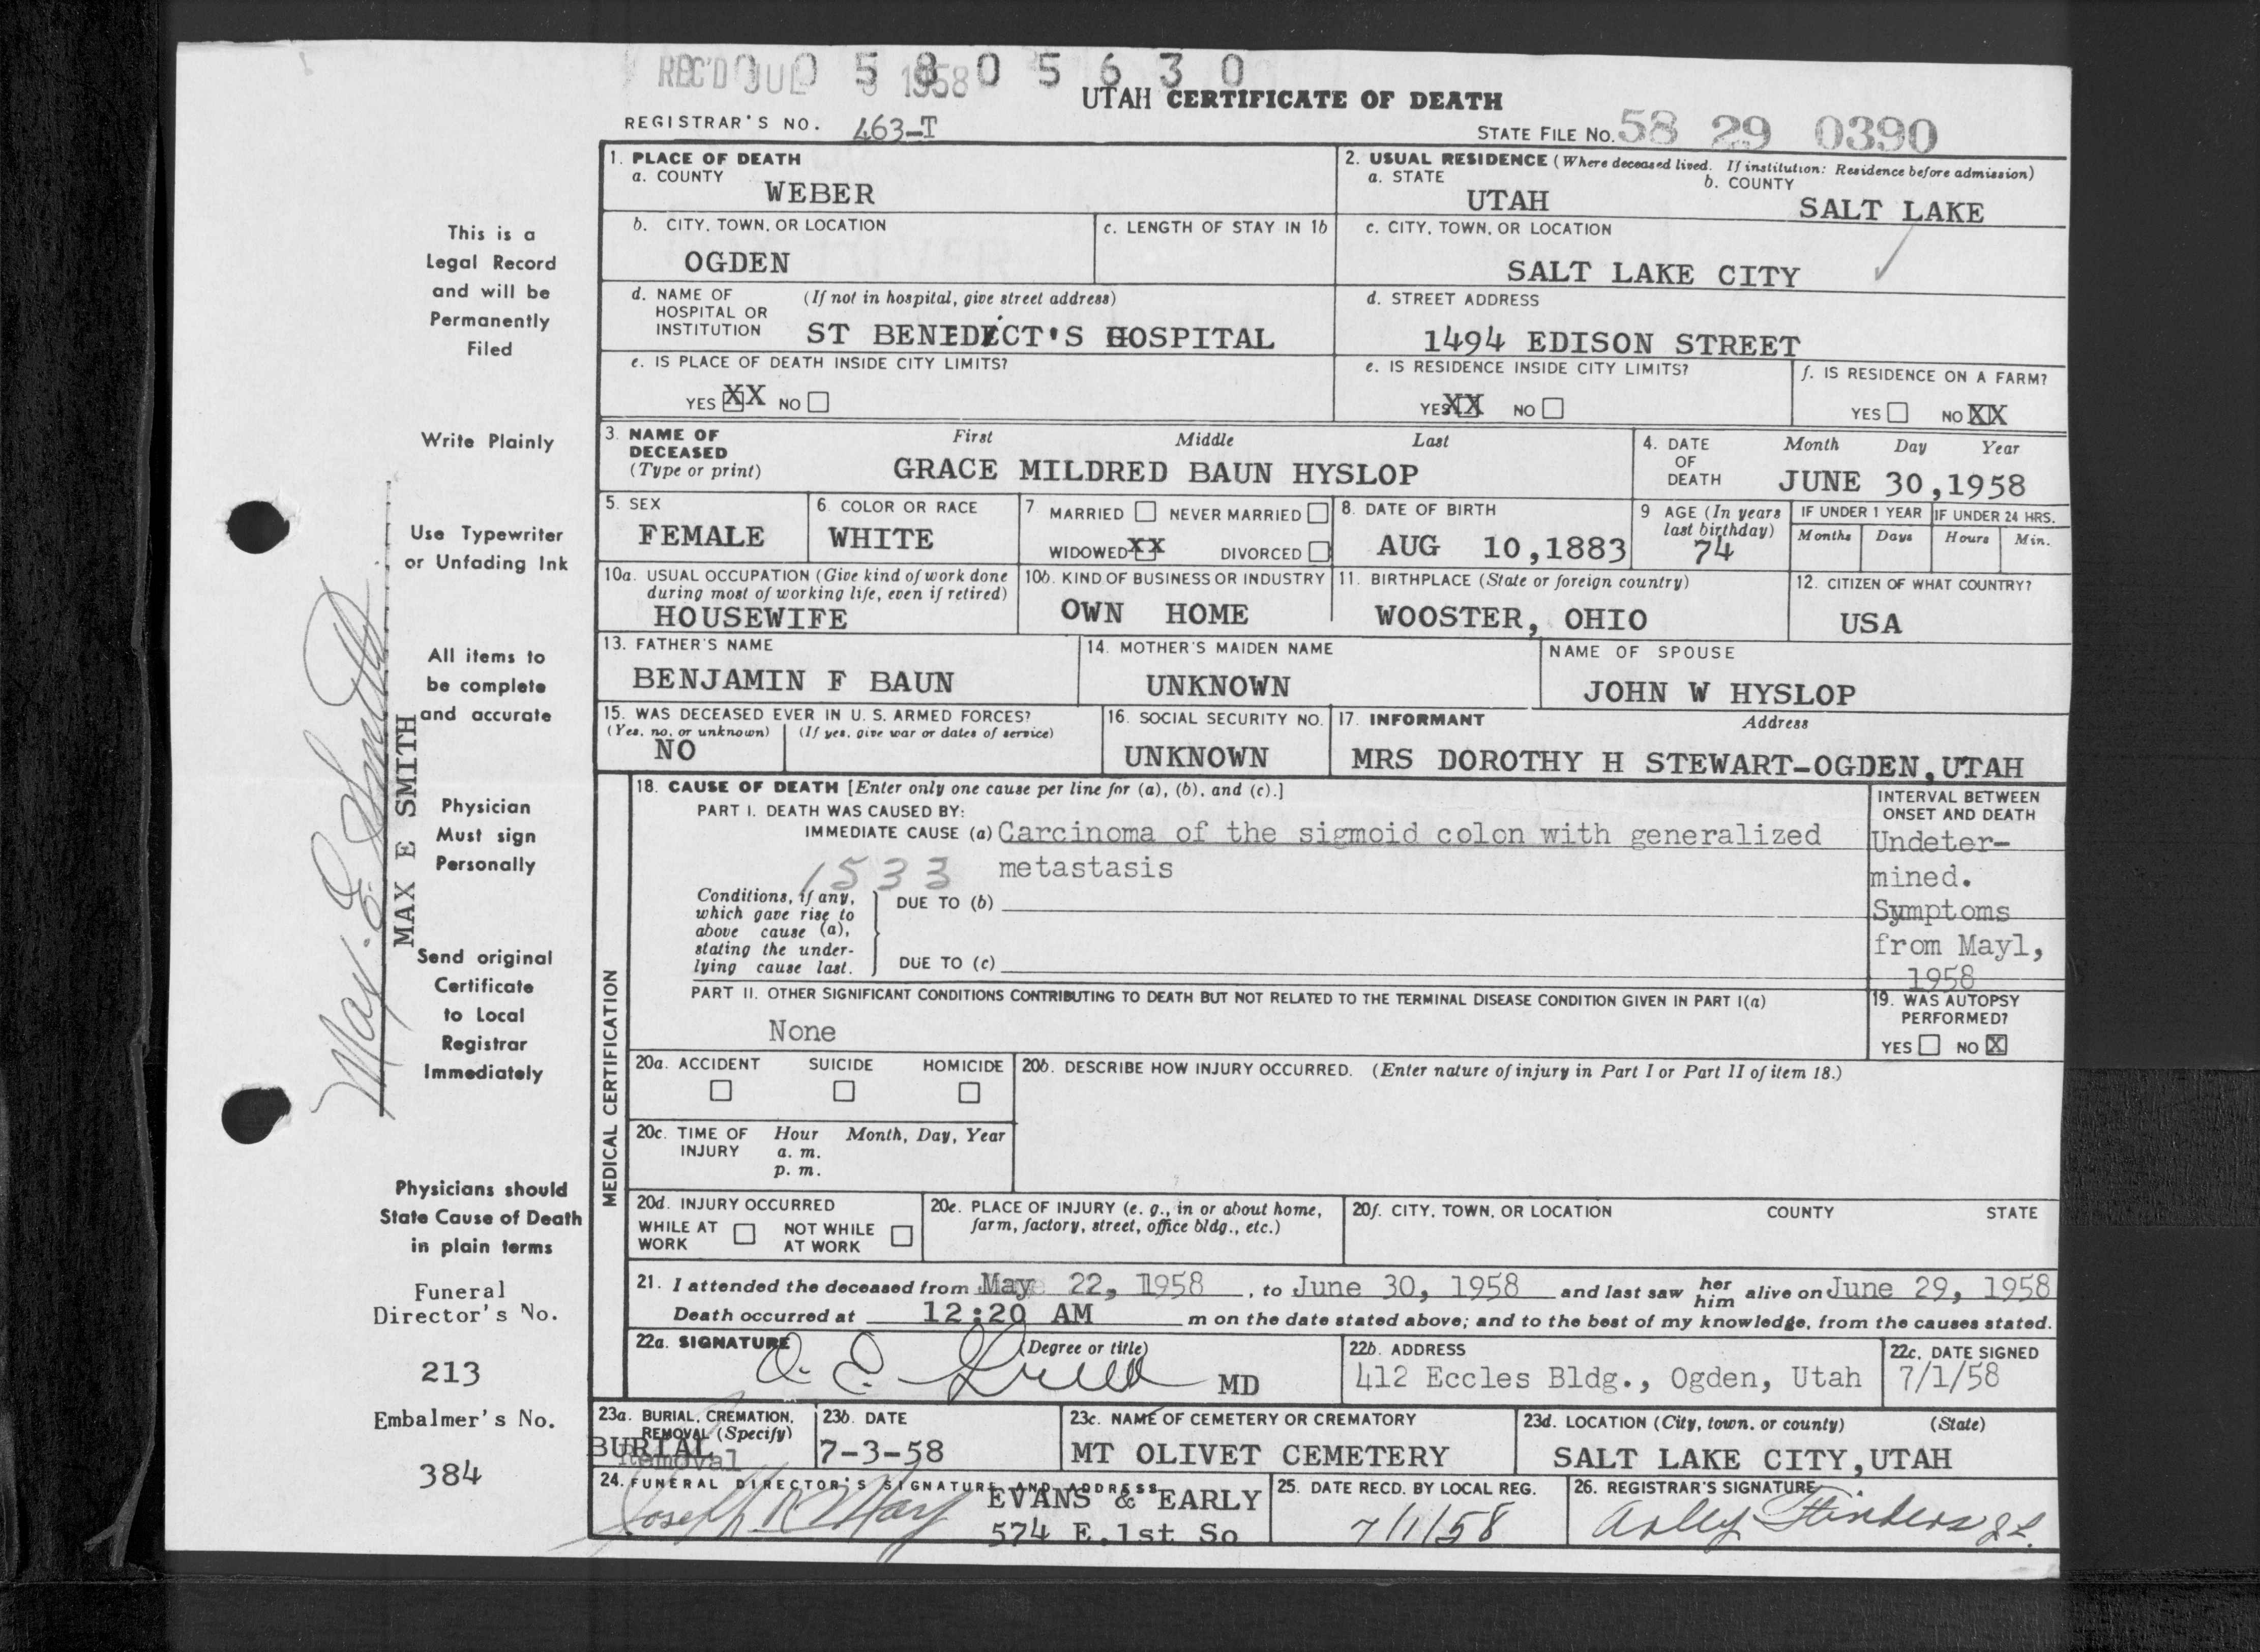 REC'D JUL 1958 0 0 5 8 0 5 6 3 0
UTAH CERTIFICATE OF DEATH
REGISTRAR'S NO. 463-T
STATE FILE NO. 58 29 0390
1. PLACE OF DEATH
a. COUNTY
WEBER
2. USUAL RESIDENCE (Where deceased lived. If institution: Residence before admission)
a. STATE
UTAH
b. COUNTY
SALT LAKE
b. CITY, TOWN, OR LOCATION
OGDEN
c. LENGTH OF STAY IN 1b
c. CITY, TOWN, OR LOCATION
SALT LAKE CITY
d. NAME OF HOSPITAL OR INSTITUTION
(If not in hospital, give street address)
ST BENEDICT'S HOSPITAL
d. STREET ADDRESS
1494 EDISON STREET
e. IS PLACE OF DEATH INSIDE CITY LIMITS?
YES XX NO
e. IS RESIDENCE INSIDE CITY LIMITS?
YES XX NO
f. IS RESIDENCE ON A FARM?
YES NO XX
3. NAME OF DECEASED
(Type or print)
First Middle Last
GRACE MILDRED BAUN HYSLOP
4. DATE OF DEATH
Month Day Year
JUNE 30,1958
5. SEX
FEMALE
6. COLOR OR RACE
WHITE
7. MARRIED NEVER MARRIED
WIDOWED XX DIVORCED
8. DATE OF BIRTH
AUG 10,1883
9 AGE (In years last birthday)
74
IF UNDER 1 YEAR
Months Days
IF UNDER 24 HRS.
Hours Min.
10a. USUAL OCCUPATION (Give kind of work done during most of working life, even if retired)
HOUSEWIFE
10b. KIND OF BUSINESS OR INDUSTRY
OWN HOME
11. BIRTHPLACE (State or foreign country)
WOOSTER, OHIO
12. CITIZEN OF WHAT COUNTRY?
USA
13. FATHER'S NAME
BENJAMIN F BAUN
14. MOTHER'S MAIDEN NAME
UNKNOWN
NAME OF SPOUSE
JOHN W HYSLOP
15. WAS DECEASED EVER IN U. S. ARMED FORCES?
(Yes, no, or unknown) (If yes, give war or dates of service)
NO
16. SOCIAL SECURITY NO.
UNKNOWN
17. INFORMANT Address
MRS DOROTHY H STEWART-OGDEN,UTAH
MEDICAL CERTIFICATION
18. CAUSE OF DEATH [Enter only one cause per line for (a), (b), and (c).]
PART I. DEATH WAS CAUSED BY:
IMMEDIATE CAUSE (a) Carcinoma of the sigmoid colon with generalized
metastasis
1533
Conditions, if any, which gave rise to above cause (a), stating the underlying cause last.
DUE TO (b)
DUE TO (c)
INTERVAL BETWEEN ONSET AND DEATH
Undeter-
mined.
Symptoms
from May1,
1958
PART II. OTHER SIGNIFICANT CONDITIONS CONTRIBUTING TO DEATH BUT NOT RELATED TO THE TERMINAL DISEASE CONDITION GIVEN IN PART I(a)
None
19. WAS AUTOPSY PERFORMED?
YES NO X
20a. ACCIDENT SUICIDE HOMICIDE
20b. DESCRIBE HOW INJURY OCCURRED. (Enter nature of injury in Part I or Part II of item 18.)
20c. TIME OF INJURY
Hour Month, Day, Year
a. m.
p. m.
20d. INJURY OCCURRED
WHILE AT WORK NOT WHILE AT WORK
20e. PLACE OF INJURY (e. g., in or about home, farm, factory, street, office bldg., etc.)
20f. CITY, TOWN, OR LOCATION COUNTY STATE
21. I attended the deceased from May 22, 1958, to June 30, 1958 and last saw her him alive on June 29, 1958
Death occurred at 12:20 AM m on the date stated above; and to the best of my knowledge, from the causes stated.
22a. SIGNATURE (Degree or title)
MD
22b. ADDRESS
412 Eccles Bldg., Ogden, Utah
22c. DATE SIGNED
7/1/58
23a. BURIAL, CREMATION, REMOVAL (Specify)
BURIAL
Removal
23b. DATE
7-3-58
23c. NAME OF CEMETERY OR CREMATORY
MT OLIVET CEMETERY
23d. LOCATION (City, town, or county) (State)
SALT LAKE CITY,UTAH
24. FUNERAL DIRECTOR'S SIGNATURE AND ADDRESS
EVANS & EARLY
574 E.1st So
25. DATE RECD. BY LOCAL REG.
7/1/58
26. REGISTRAR'S SIGNATURE
This is a
Legal Record
and will be
Permanently
Filed
Write Plainly
Use Typewriter
or Unfading Ink
All items to
be complete
and accurate
Physician
Must sign
Personally
Send original
Certificate
to Local
Registrar
Immediately
Physicians should
State Cause of Death
in plain terms
Funeral
Director's No.
213
Embalmer's No.
384
Max E Smith
MAX E SMITH